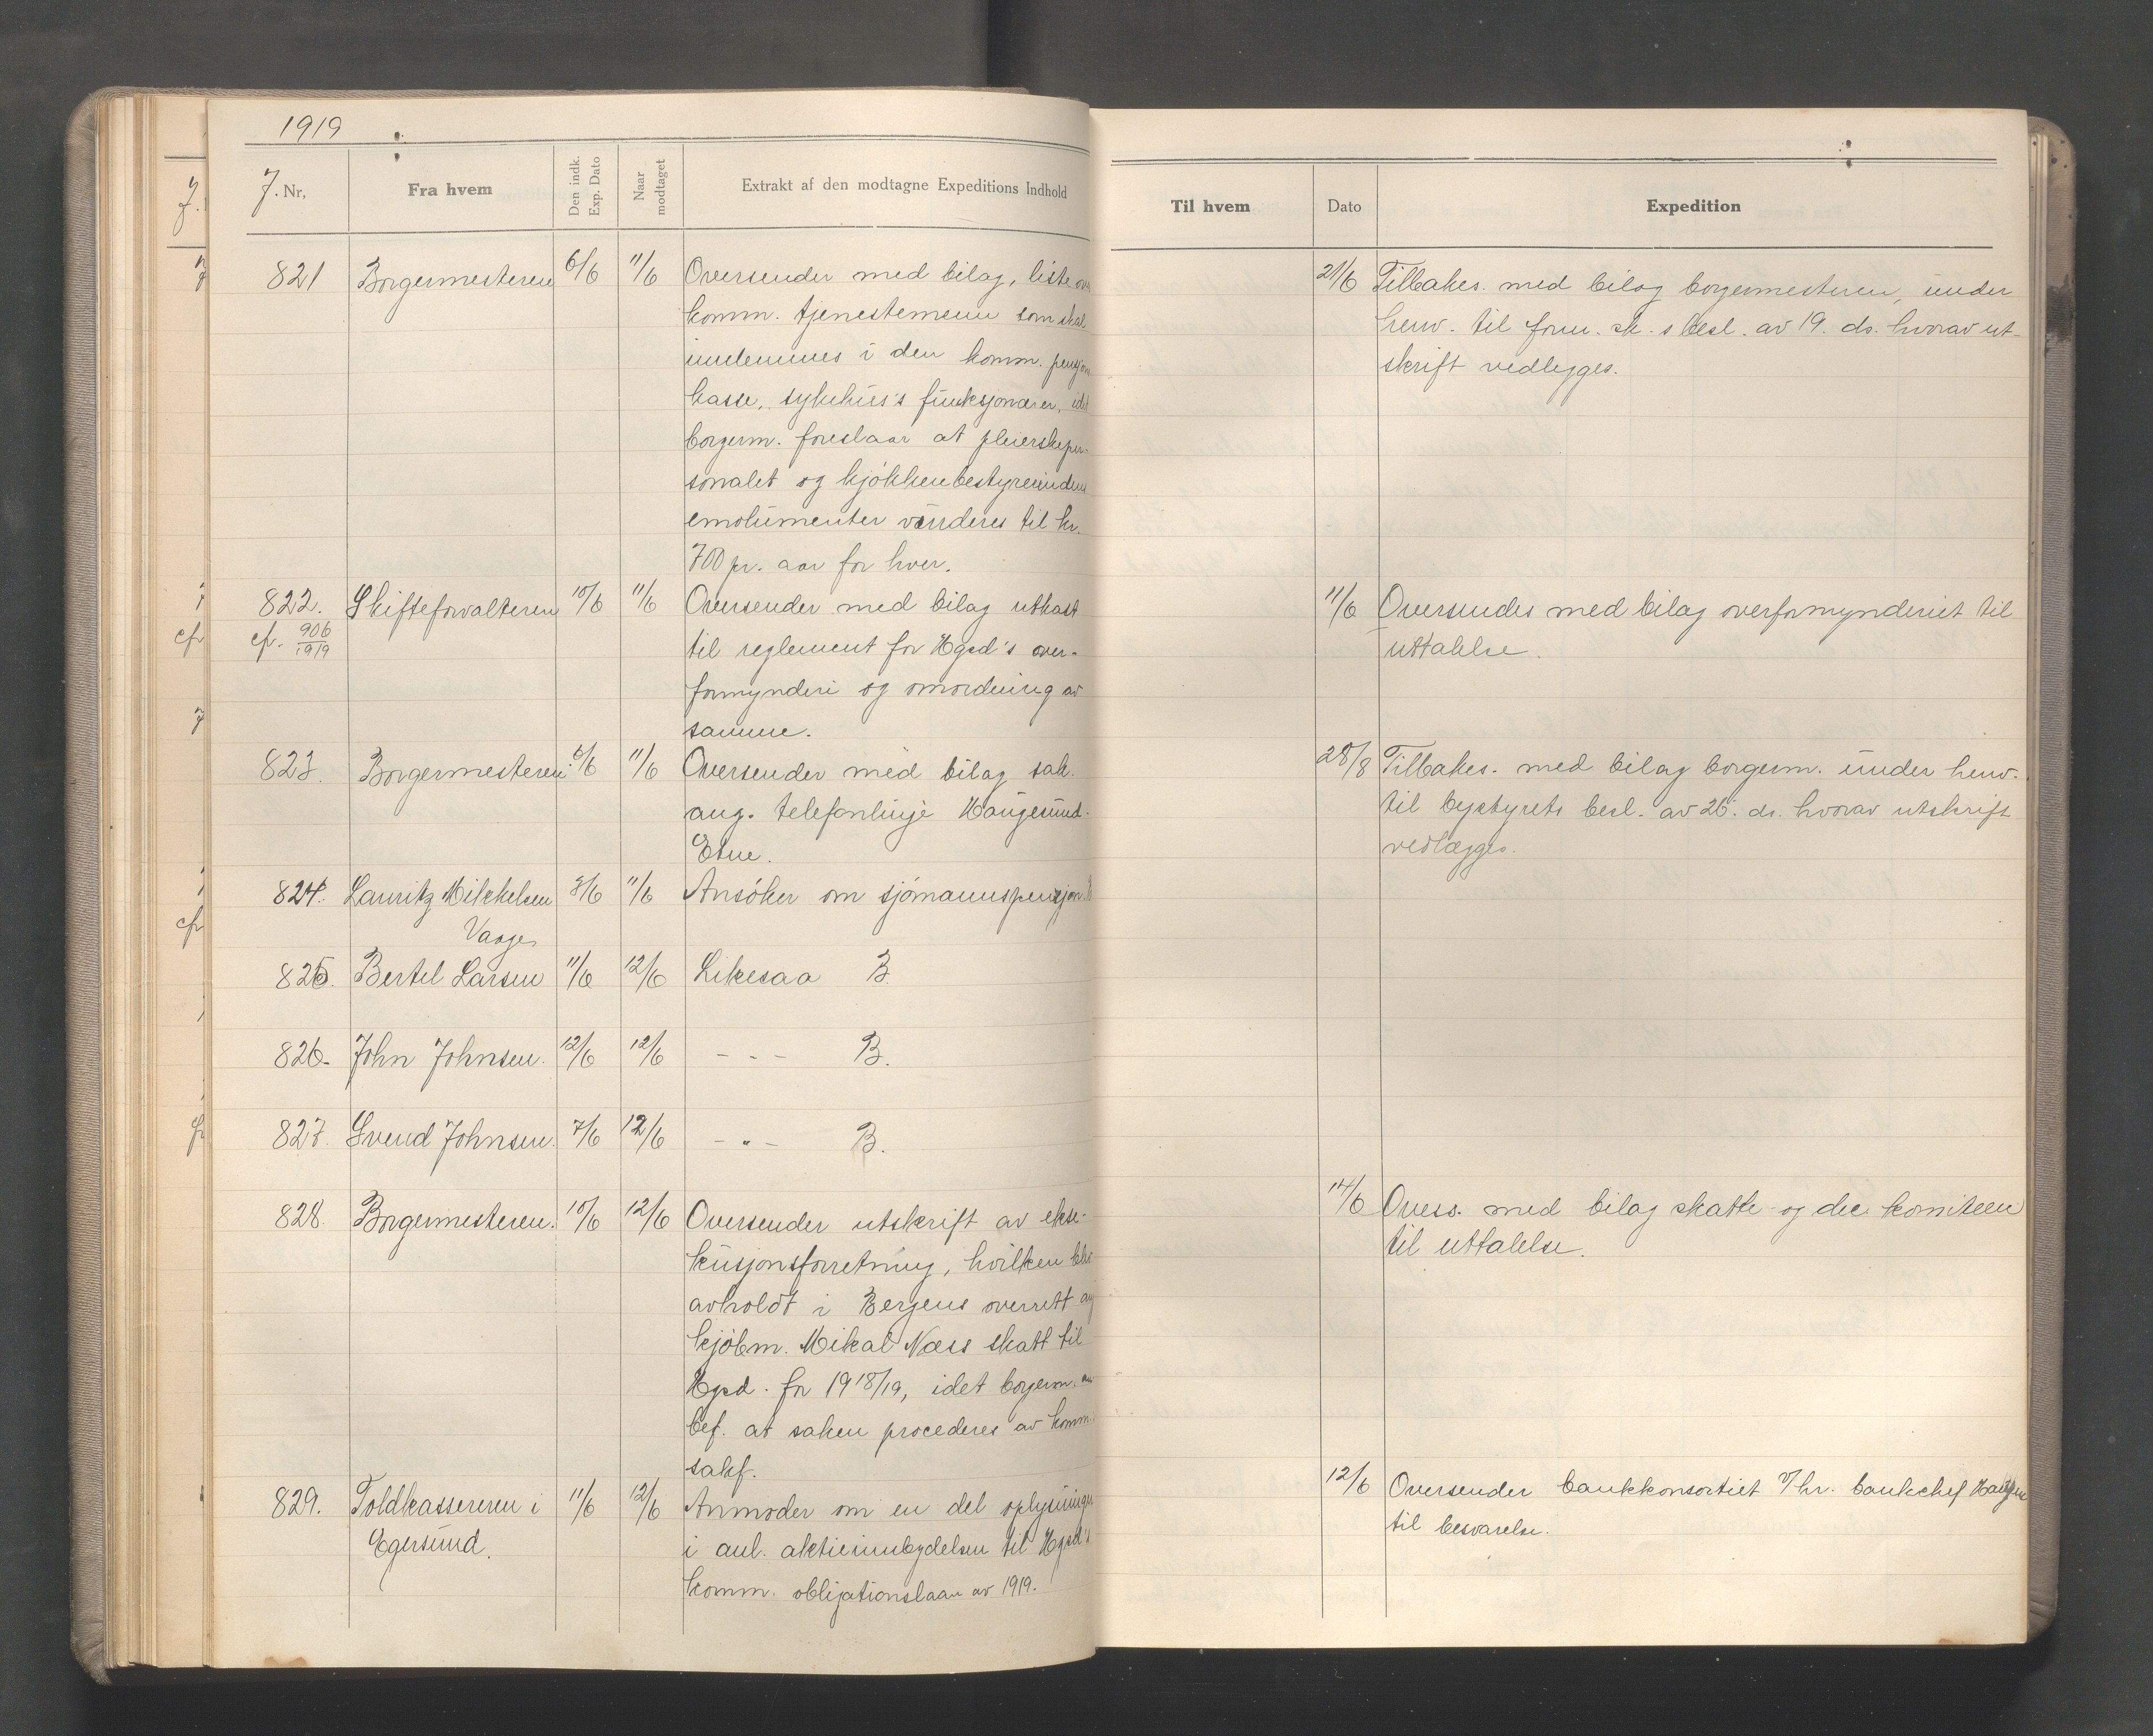 1919
J. Nr.
Fra hvem
Den indk. Exp. Dato
Naar modtaget
Extrakt af den modtagne Expeditions Indhold
Til hvem
Dato
Expedition
821 Borgermesteren 6/6 11/6 Oversender med bilag, liste
komm. tjenestemenn som skal
innlemmes i den komm.
kasse, sykehus's funksjonærer,
borgerm. foreslaar at pleierskeper-
sonalet og kjøkkenbestyrerindens
emolumenter vurderes til kr.
700 pr. aar for hver.
21/6 Tilbakes. med bilag borgermesteren, under
henv. til form.sk.s besl. av 19. ds. hvorav ut-
skrift vedlegges.
822. Skifteforvalteren 10/6 11/6 Oversender med bilag utkast
cfr. 906/1919 til reglement for Hgsd's over-
formynderi og omordning av
samme.
11/6 Oversendes med bilag overformynderiet til
uttalelse.
823. Borgermesteren 6/6 11/6 Oversender med bilag sak.
ang. telefonlinje Haugesund-
Etne.
28/8 Tilbakes. med bilag borgerm. under henv.
til bystyrets besl. av 26. ds. hvorav utskrift
vedlægges.
824. Lauritz Mikkelsen 8/6 11/6 Ansøker om sjømannspensjon. B
Vaage
825. Bertel Larsen 11/6 12/6 Likesaa B.
826. John Johnsen. 12/6 12/6 - - - B.
827. Svend Johnsen. 7/6 12/6 - " - B.
828. Borgermesteren. 10/6 12/6 Oversender utskrift av ekse-
kusjonsforretning, hvilken blev
avholdt i Bergens overrett ang
kjøbm. Mikal Næss skatt til
Hgsd. for 1918/19, idet borgerm. an
bef. at saken procederes av komm.
sakf.
14/6 Overs. med bilag skatte- og dec. komiteen
til uttalelse.
829. Toldkassereren i 11/6 12/6 Anmoder om en del oplysninger
Egersund. i anl. aktieinnbydelsen til Hgsd's
komm. obligationslaan av 1919.
12/6 Oversender bankkonsortiet v/hr. bankchef
til besvarelse.